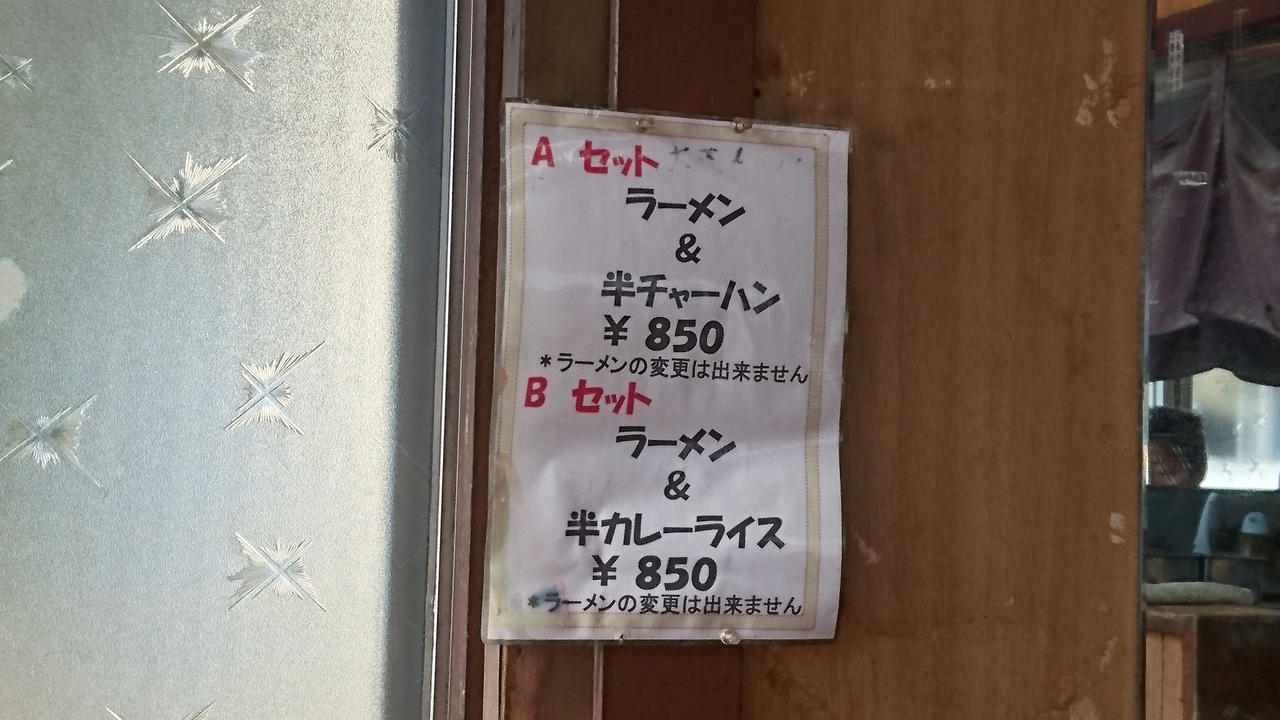 A セット
ラーメン
&
半チャーハン
¥ 850
*ラーメンの変更は出来ません
B セット
ラーメン
&
半カレーライス
¥ 850
*ラーメンの変更は出来ません